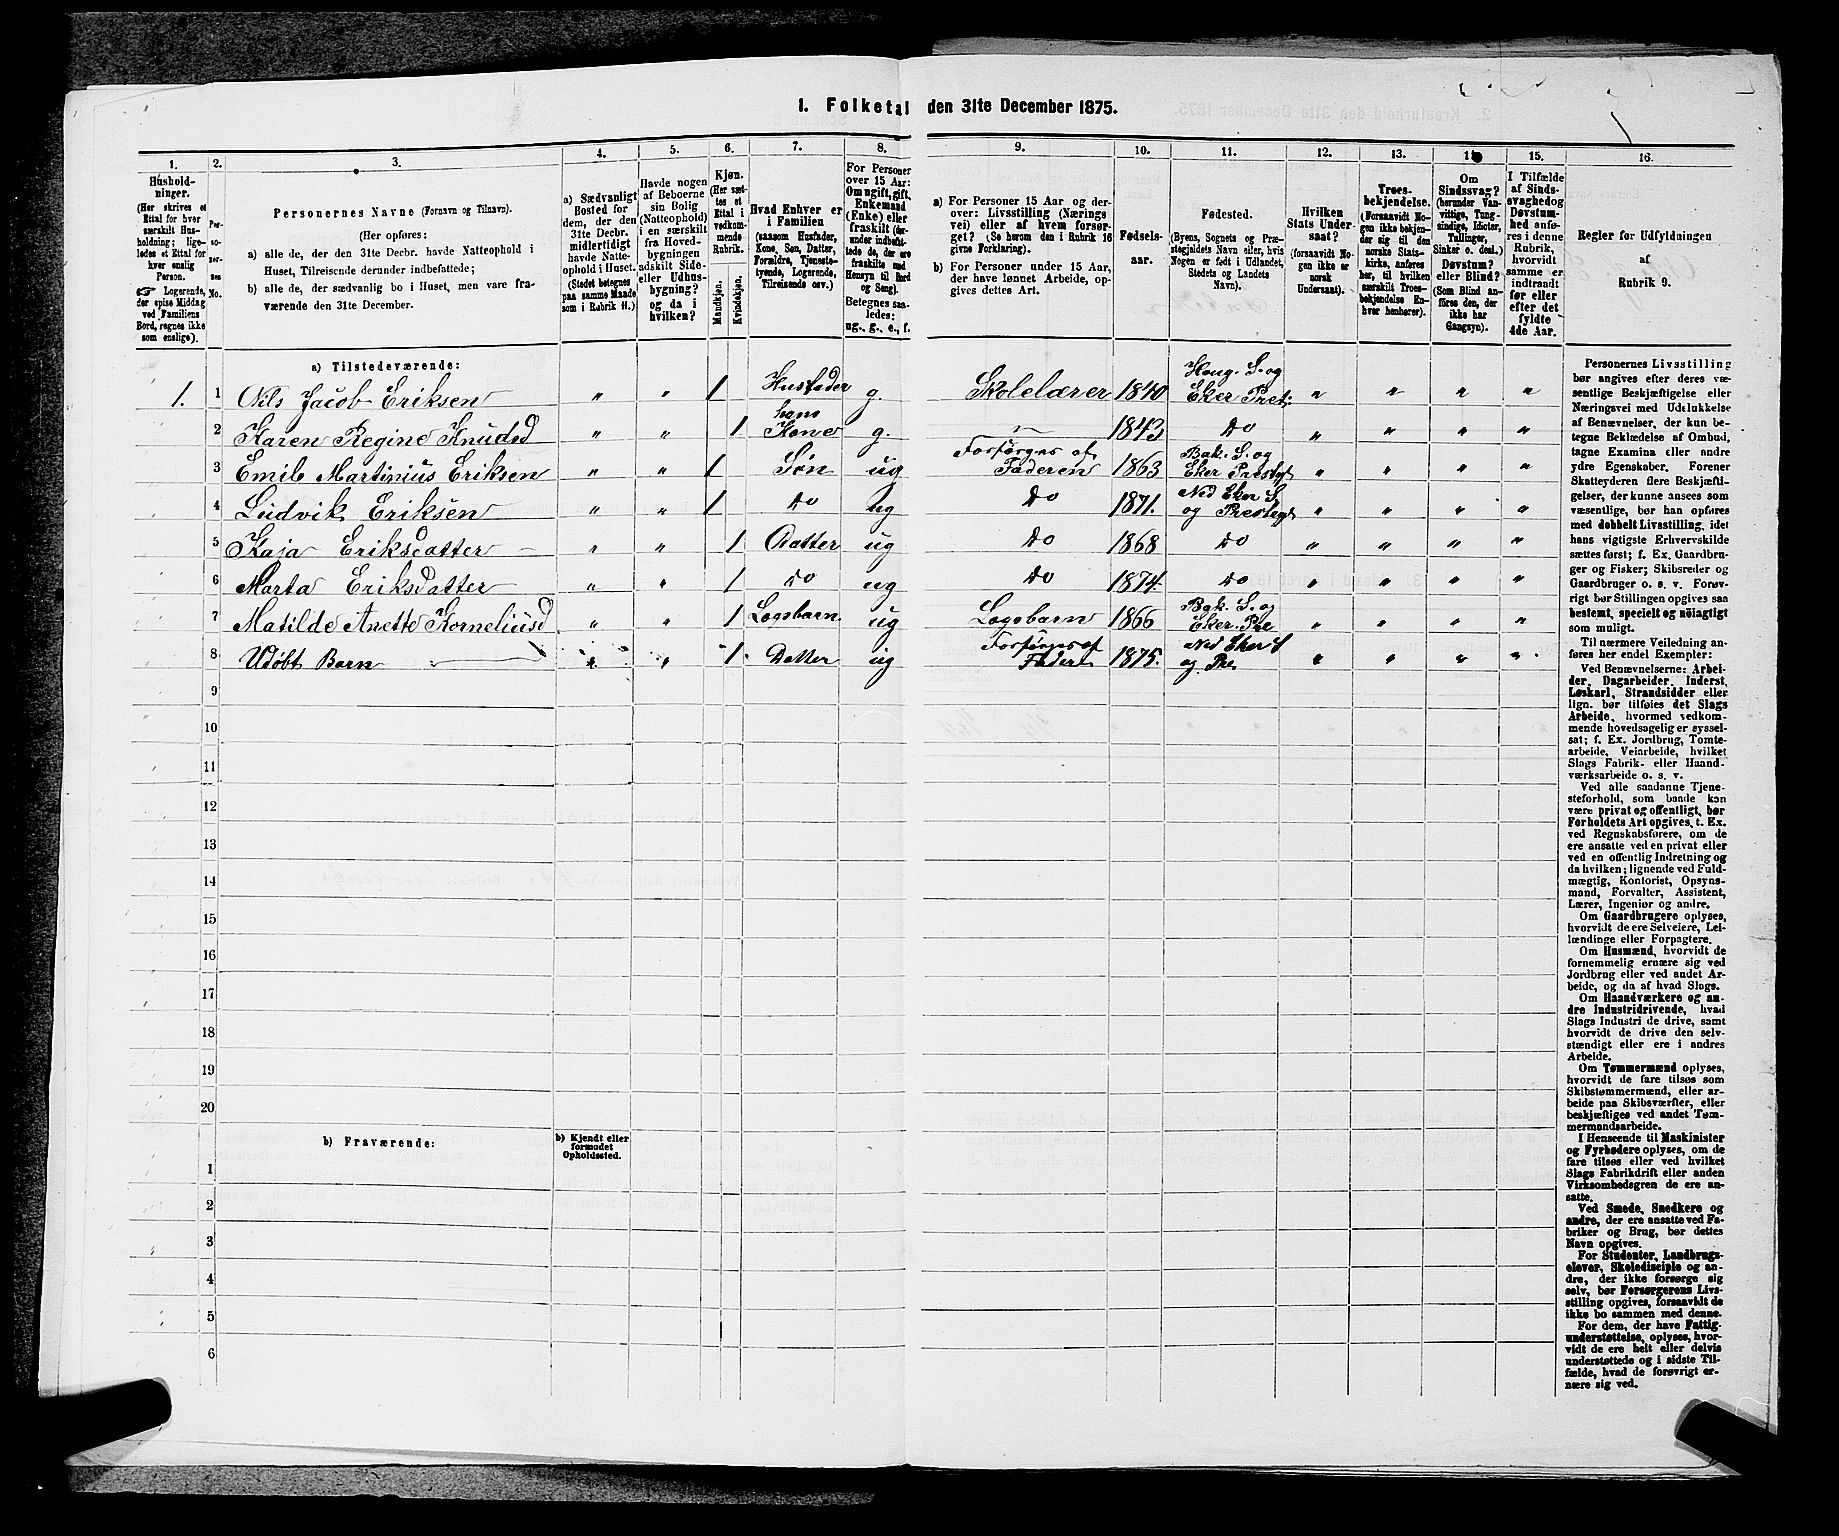 1. Folketal den 31te December 1875.
1. 2. 3. 4. 5. 6. 7. 8. 9. 10. 11. 12. 13. 15. 16.
Hushold-
ninger.
(Her skrives et
Ettal for hver
særskilt Hus-
holdning; lige-
ledes et Ettal for
hver enslig
Person.
Logerende,
der spise Middag
ved Familiens
Bord, regnes ikke
som enslige).
Per-
so-
ner-
nes
No.
Personernes Navne (Fornavn og Tilnavn).
(Her opføres:
a) alle de, der den 31te Decbr. havde Natteophold i
Huset, Tilreisende derunder indbefattede;
b) alle de, der sædvanlig bo i Huset, men vare fra-
værende den 31te December.
a) Sædvanligt
Bosted for
dem, der den
31te Decbr.
midlertidigt
havde Natte-
ophold i Huset.
(Stedet betegnes
paa samme Maade
som i Rubrik 11.)
Havde nogen
af Beboerne
sin Bolig
(Natteophold)
i en særskilt
fra Hoved-
bygningen
adskilt Side-
eller Udhus-
bygning?
og da i
hvilken?
Kjøn.
(Her sæt-
tes et
Ettal i
vedkom-
mende
Rubrik.
Mandkjøn.
Kvindekjøn.
Hvad Enhver er
i Familien
(saasom Husfader,
Kone, Søn, Datter,
Forældre, Tjeneste-
tyende, Logerende,
Tilreisende osv.)
For Personer
over 15 Aar:
Om ugift, gift,
Enkemand
(Enke) eller
fraskilt (der-
under indbefat-
tede de, der ere
fraskilte med
Hensyn til Bord
og Seng).
Betegnes saa-
ledes:
ug., g., e., f.
a) For Personer 15 Aar og der-
over: Livsstilling (Nærings
vei) eller af hvem forsør-
get? (Se herom den i Rubrik 16
givne Forklaring).
b) For Personer under 15 Aar,
der have lønnet Arbeide, op-
gives dettes Art.
Fødsels-
aar.
Fødested.
(Byens, Sognets og Præ-
stegjeldets Navn eller, hvis
Nogen er født i Udlandet,
Stedets og Landets
Navn).
Hvilken
Stats Under-
saat?
(forsaavidt No-
gen ikke er
norsk
Undersaat).
Troes-
bekjendelse.
(Forsaavidt No-
gen ikke bekjen-
der sig til den
norske Stats-
kirke, anføres
her, til hvilken
særskilt Troes-
bekjendelse En-
hver henhører).
Om
Sindssvag?
(herunder Van-
vittige, Tung-
sindige, Idioter,
Tullinger,
Sinker o. desl.)
Døvstum?
eller Blind?
(Som Blind an-
føres den, der
ikke har
Gangsyn).
I Tilfælde
af Sinds-
svaghed og
Døvstum-
hed anfø-
res i denne
Rubrik,
hvorvidt
samme er
indtraadt
før eller
efter det
fyldte
4de Aar.
Regler for Udfyldningen
af
Rubrik 9.
a) Tilstedeværende:
1. 1 Nils Jacob Eriksen " " 1 Husfader g. Skolelærer 1840 Houg. S. og Eker Prst: " " " "
2 Karen Regine Knudsd " " 1 hans Kone g. 1843 Do " " " "
3 Emile Martinius Eriksen " " 1 Søn ug Forsørges af Faderen 1863 Bak. S. og Eker Prestgd " " " "
4 Ludvik Eriksen " " 1 Do ug Do 1871. Ned Eker S og Prestegd " " " "
5 Kaja Eriksdatter " " 1 Datter ug Do 1868 Do " " " "
6 Marta Eriksdatter " " 1 Do ug Do 1874. Do " " " "
7 Matilde Anette Korneliusd " " 1 Logsbarn ug Logsbarn 1866 Bak. S. og Eker. Pre " " " "
8 Udøbt Barn " " 1. Datter ug Forsørges af Fadern 1875. Ned Eker S og Pre " " " "
9
10
11
12
13
14
15
16
17
18
19
20
b) Fraværende:
b) Kjendt eller
formodet
Opholdssted.
1
2
3
4
5
6
Personernes Livsstilling
bør angives efter deres væ-
sentlige Beskjæftigelse eller
Næringsvei med Udelukkelse
af Benævnelser, der kun be-
tegne Beklædelse af Ombud,
tagne Examina eller andre
ydre Egenskaber. Forener
Skatteyderen flere Beskjæfti-
gelser, der kunne ansees som
væsentlige, bør han opføres
med dobbelt Livsstilling, idet
hans vigtigste Erhvervskilde
sættes først; f. Ex. Gaardbru-
ger og Fisker; Skibsreder og
Gaardbruger o. s. v. Forøv-
rigt bør Stillingen opgives saa
bestemt, specielt og nøiagtigt
som muligt.
Til nærmere Veiledning an-
føres her endel Exempler:
Ved Benævnelserne: Arbei-
der, Dagarbeider, Inderst,
Løskarl, Strandsidder eller
lign. bør tilføies det Slags
Arbeide, hvormed vedkom-
mende hovedsagelig er syssel-
sat; f. Ex. Jordbrug, Tomte-
arbeide, Veiarbeide, hvilket
Slags Fabrik- eller Haand-
værksarbeide o. s. v.
Ved alle saadanne Tjene-
steforhold, som baade kan
være privat og offentligt, bør
Forholdets Art opgives, t. Ex.
ved Regnskabsførere, om de
ere ansatte ved en privat eller
ved en offentlig Indretning og
da hvilken; lignende ved Fuld-
mægtig, Kontorist, Opsyns-
mand, Forvalter, Assistent,
Lærer, Ingeniør og andre.
Om Gaardbrugere oplyses,
hvorvidt de ere Selveiere, Lei-
lændinge eller Forpagtere.
Om Husmænd, hvorvidt de
fornemmelig ernære sig ved
Jordbrug eller ved andet Ar-
beide, og da af hvad Slags.
Om Haandværkere og an-
dre Industridrivende, hvad
Slags Industri de drive, samt
hvorvidt de drive den selv-
stændigt eller ere i andres
Arbeide.
Om Tømmermænd oplyses,
hvorvidt de fare tilsøs som
Skibstømmermænd, eller ar-
beide paa Skibsværfter, eller
beskjæftiges ved andet Tøm-
mermandsarbeide.
I Henseende til Maskinister
og Fyrbødere oplyses, om de
fare tilsøs eller ved hvilket
Slags Fabrikdrift eller anden
Virksomhedsgren de ere an-
satte.
Ved Smede, Snedkere og
andre, der ere ansatte ved Fa-
briker og Brug, bør dettes
Navn opgives.
For Studenter, Landbrugs-
elever, Skoledisciple og an-
dre, der ikke forsørge sig
selv, bør Forsørgerens Livs-
stilling opgives, forsaavidt de
ikke bo sammen med denne.
For dem, der have Fattig-
understøttelse, oplyses, hvor-
vidt de ere helt eller delvis
understøttede og i sidste Til-
fælde, hvad de forøvrigt er-
nære sig ved.